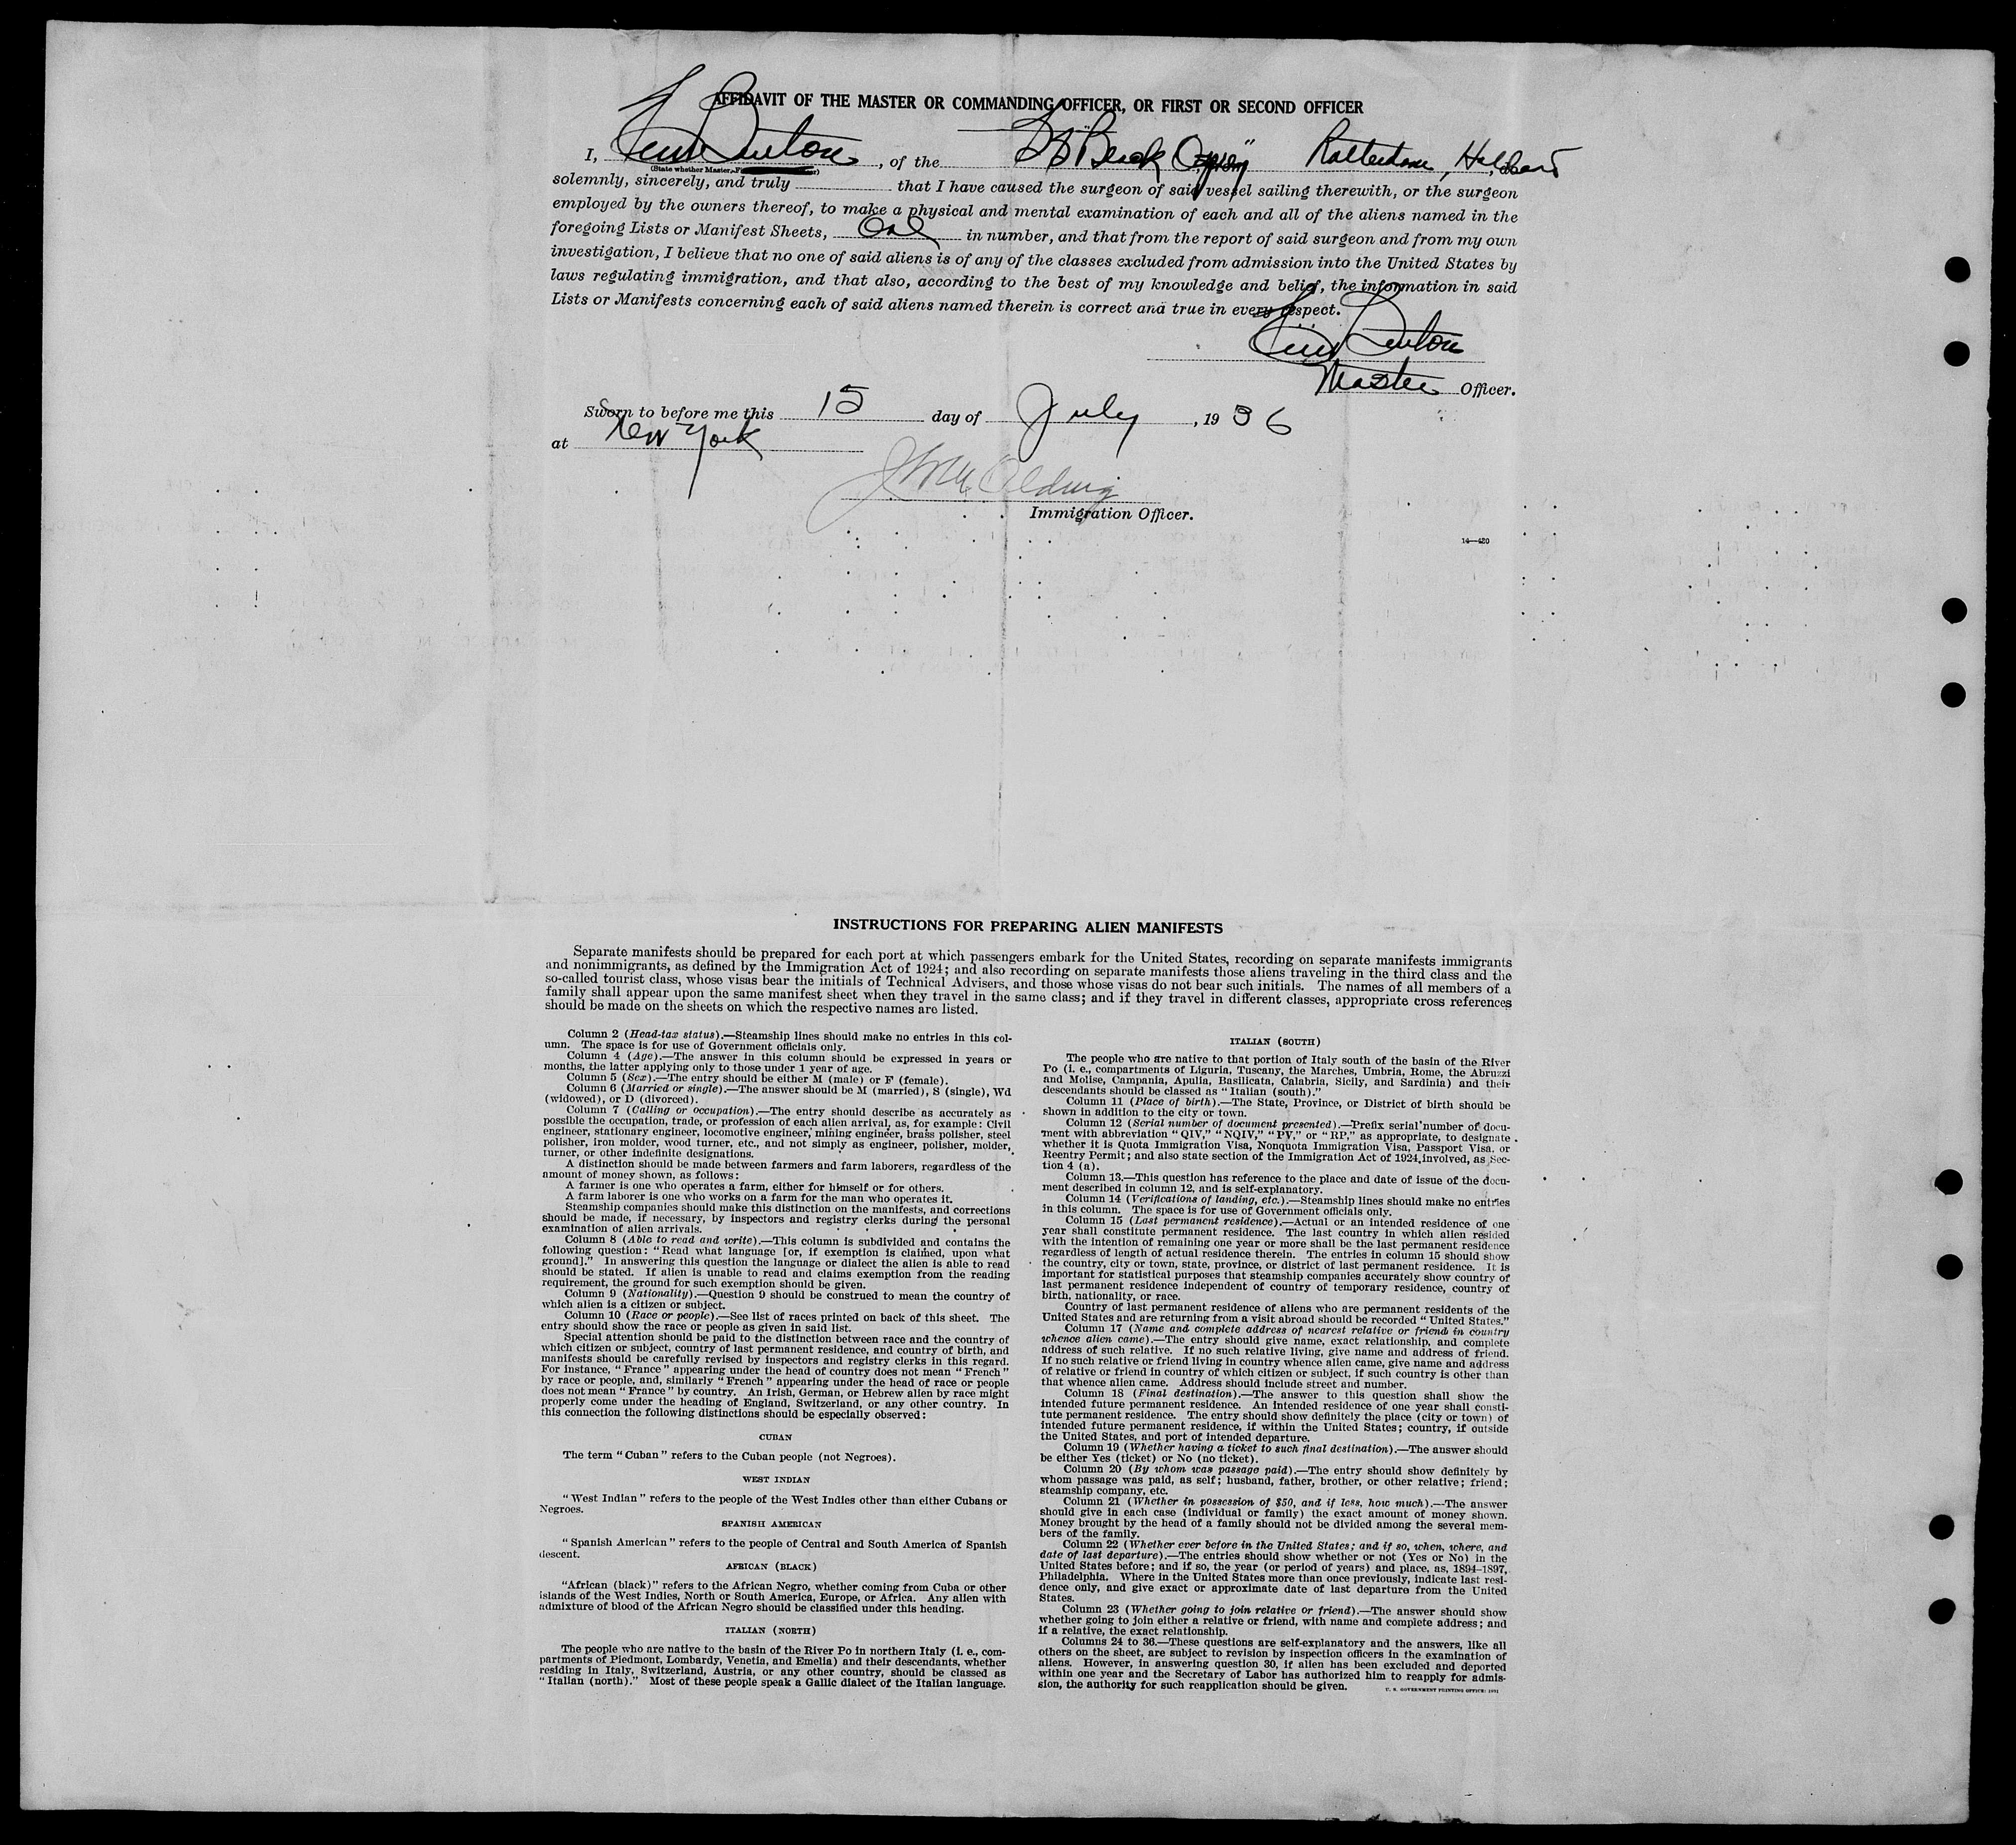 AFFIDAVIT OF THE MASTER OR COMMANDING OFFICER, OR FIRST OR SECOND OFFICER
I, , of the Rotterdam, Holland
(State whether Master,
solemnly, sincerely, and truly that I have caused the surgeon of said vessel sailing therewith, or the surgeon
employed by the owners thereof, to make a physical and mental examination of each and all of the aliens named in the
foregoing Lists or Manifest Sheets, One in number, and that from the report of said surgeon and from my own
investigation, I believe that no one of said aliens is of any of the classes excluded from admission into the United States by
laws regulating immigration, and that also, according to the best of my knowledge and belief, the information in said
Lists or Manifests concerning each of said aliens named therein is correct and true in every respect.
Master Officer.
Sworn to before me this 15 day of July, 1936
at New York
Immigration Officer.
14—420
INSTRUCTIONS FOR PREPARING ALIEN MANIFESTS
Separate manifests should be prepared for each port at which passengers embark for the United States, recording on separate manifests immigrants
and nonimmigrants, as defined by the Immigration Act of 1924; and also recording on separate manifests those aliens traveling in the third class and the
so-called tourist class, whose visas bear the initials of Technical Advisers, and those whose visas do not bear such initials. The names of all members of a
family shall appear upon the same manifest sheet when they travel in the same class; and if they travel in different classes, appropriate cross references
should be made on the sheets on which the respective names are listed.
Column 2 (Head-tax status).—Steamship lines should make no entries in this col-
umn. The space is for use of Government officials only.
Column 4 (Age).—The answer in this column should be expressed in years or
months, the latter applying only to those under 1 year of age.
Column 5 (Sex).—The entry should be either M (male) or F (female).
Column 6 (Married or single).—The answer should be M (married), S (single), Wd
(widowed), or D (divorced).
Column 7 (Calling or occupation).—The entry should describe as accurately as
possible the occupation, trade, or profession of each alien arrival, as, for example: Civil
engineer, stationary engineer, locomotive engineer, mining engineer, brass polisher, steel
polisher, iron molder, wood turner, etc., and not simply as engineer, polisher, molder,
turner, or other indefinite designations.
A distinction should be made between farmers and farm laborers, regardless of the
amount of money shown, as follows:
A farmer is one who operates a farm, either for himself or for others.
A farm laborer is one who works on a farm for the man who operates it.
Steamship companies should make this distinction on the manifests, and corrections
should be made, if necessary, by inspectors and registry clerks during the personal
examination of alien arrivals.
Column 8 (Able to read and write).—This column is subdivided and contains the
following question: "Read what language [or, if exemption is claimed, upon what
ground]." In answering this question the language or dialect the alien is able to read
should be stated. If alien is unable to read and claims exemption from the reading
requirement, the ground for such exemption should be given.
Column 9 (Nationality).—Question 9 should be construed to mean the country of
which alien is a citizen or subject.
Column 10 (Race or people).—See list of races printed on back of this sheet. The
entry should show the race or people as given in said list.
Special attention should be paid to the distinction between race and the country of
which citizen or subject, country of last permanent residence, and country of birth, and
manifests should be carefully revised by inspectors and registry clerks in this regard.
For instance, "France" appearing under the head of country does not mean "French"
by race or people, and, similarly "French" appearing under the head of race or people
does not mean "France" by country. An Irish, German, or Hebrew alien by race might
properly come under the heading of England, Switzerland, or any other country. In
this connection the following distinctions should be especially observed:
CUBAN
The term "Cuban" refers to the Cuban people (not Negroes).
WEST INDIAN
"West Indian" refers to the people of the West Indies other than either Cubans or
Negroes.
SPANISH AMERICAN
"Spanish American" refers to the people of Central and South America of Spanish
descent.
AFRICAN (BLACK)
"African (black)" refers to the African Negro, whether coming from Cuba or other
islands of the West Indies, North or South America, Europe, or Africa. Any alien with
admixture of blood of the African Negro should be classified under this heading.
ITALIAN (NORTH)
The people who are native to the basin of the River Po in northern Italy (i. e., com-
partments of Piedmont, Lombardy, Venetia, and Emelia) and their descendants, whether
residing in Italy, Switzerland, Austria, or any other country, should be classed as
"Italian (north)." Most of these people speak a Gallic dialect of the Italian language.
ITALIAN (SOUTH)
The people who are native to that portion of Italy south of the basin of the River
Po (i. e., compartments of Liguria, Tuscany, the Marches, Umbria, Rome, the Abruzzi
and Molise, Campania, Apulia, Basilicata, Calabria, Sicily, and Sardinia) and their
descendants should be classed as "Italian (south)."
Column 11 (Place of birth).—The State, Province, or District of birth should be
shown in addition to the city or town.
Column 12 (Serial number of document presented).—Prefix serial number of docu-
ment with abbreviation "QIV," "NQIV," "PV," or "RP," as appropriate, to designate
whether it is Quota Immigration Visa, Nonquota Immigration Visa, Passport Visa, or
Reentry Permit; and also state section of the Immigration Act of 1924 involved, as Sec-
tion 4 (a).
Column 13.—This question has reference to the place and date of issue of the docu-
ment described in column 12, and is self-explanatory.
Column 14 (Verifications of landing, etc.).—Steamship lines should make no entries
in this column. The space is for use of Government officials only.
Column 15 (Last permanent residence).—Actual or an intended residence of one
year shall constitute permanent residence. The last country in which alien resided
with the intention of remaining one year or more shall be the last permanent residence
regardless of length of actual residence therein. The entries in column 15 should show
the country, city or town, state, province, or district of last permanent residence. It is
important for statistical purposes that steamship companies accurately show country of
last permanent residence independent of country of temporary residence, country of
birth, nationality, or race.
Country of last permanent residence of aliens who are permanent residents of the
United States and are returning from a visit abroad should be recorded "United States."
Column 17 (Name and complete address of nearest relative or friend in country
whence alien came).—The entry should give name, exact relationship, and complete
address of such relative. If no such relative living, give name and address of friend.
If no such relative or friend living in country whence alien came, give name and address
of relative or friend in country of which citizen or subject, if such country is other than
that whence alien came. Address should include street and number.
Column 18 (Final destination).—The answer to this question shall show the
intended future permanent residence. An intended residence of one year shall consti-
tute permanent residence. The entry should show definitely the place (city or town) of
intended future permanent residence, if within the United States; country, if outside
the United States, and port of intended departure.
Column 19 (Whether having a ticket to such final destination).—The answer should
be either Yes (ticket) or No (no ticket).
Column 20 (By whom was passage paid).—The entry should show definitely by
whom passage was paid, as self; husband, father, brother, or other relative; friend;
steamship company, etc.
Column 21 (Whether in possession of $50, and if less, how much).—The answer
should give in each case (individual or family) the exact amount of money shown.
Money brought by the head of a family should not be divided among the several mem-
bers of the family.
Column 22 (Whether ever before in the United States; and if so, when, where, and
date of last departure).—The entries should show whether or not (Yes or No) in the
United States before; and if so, the year (or period of years) and place, as, 1894–1897,
Philadelphia. Where in the United States more than once previously, indicate last resi-
dence only, and give exact or approximate date of last departure from the United
States.
Column 23 (Whether going to join relative or friend).—The answer should show
whether going to join either a relative or friend, with name and complete address; and
if a relative, the exact relationship.
Columns 24 to 36.—These questions are self-explanatory and the answers, like all
others on the sheet, are subject to revision by inspection officers in the examination of
aliens. However, in answering question 30, if alien has been excluded and deported
within one year and the Secretary of Labor has authorized him to reapply for admis-
sion, the authority for such reapplication should be given.
U. S. GOVERNMENT PRINTING OFFICE: 1931